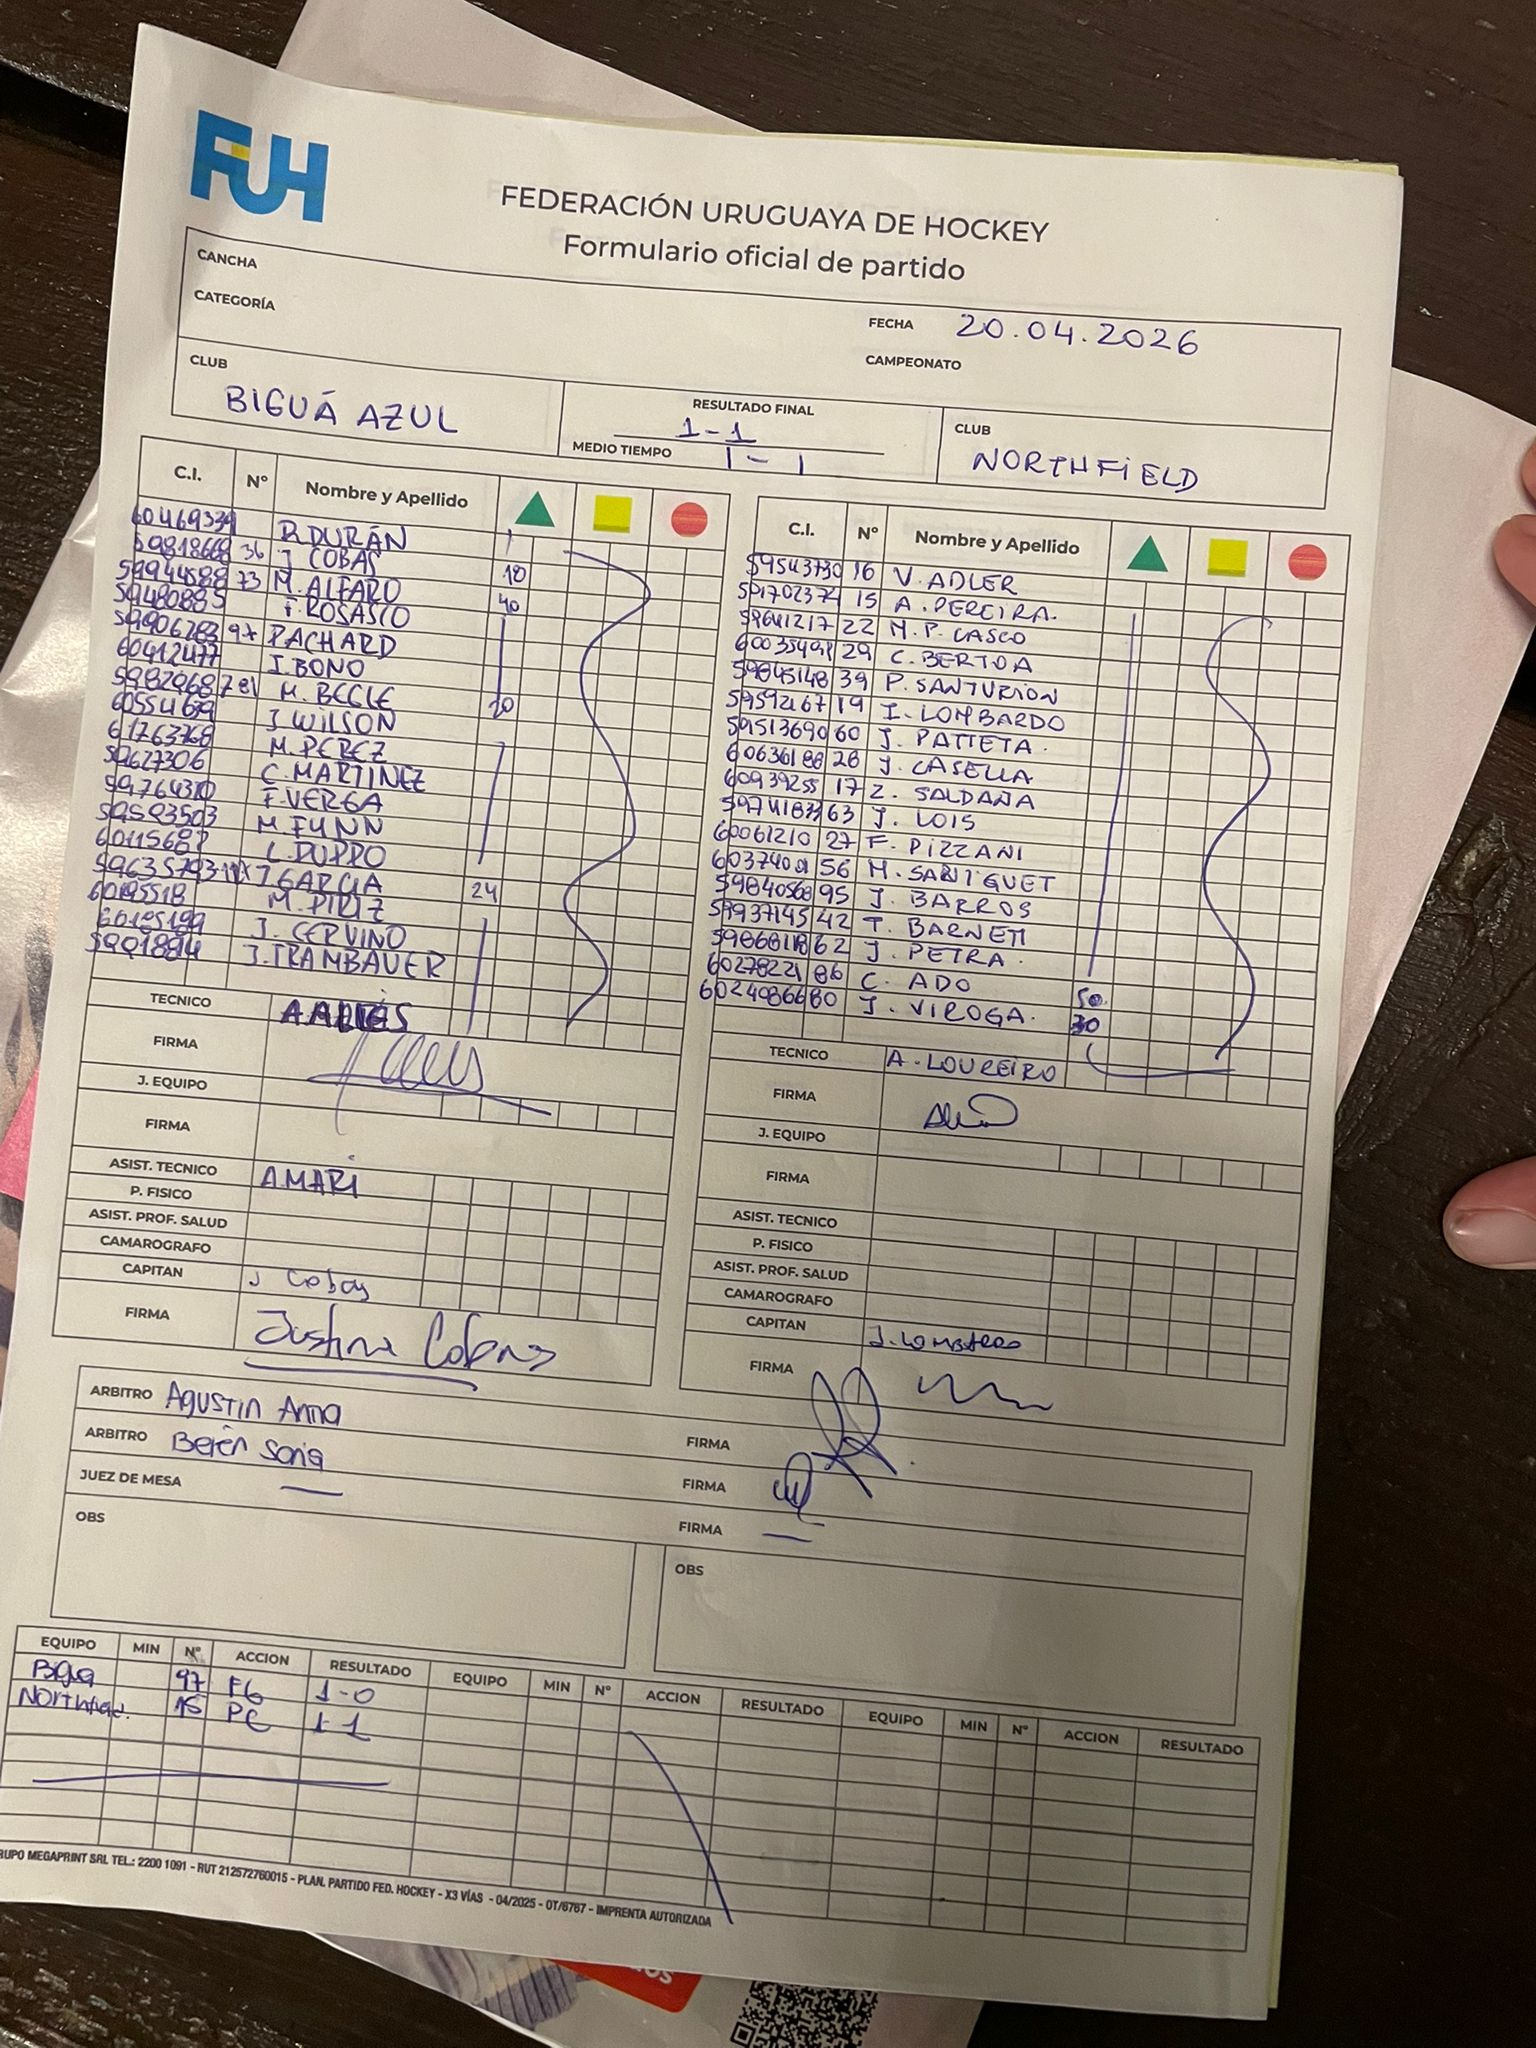 FUH
FEDERACIÓN URUGUAYA DE HOCKEY
Formulario oficial de partido
CANCHA
CATEGORÍA
FECHA 20.04.2026
CAMPEONATO
CLUB
BIGUÁ AZUL
RESULTADO FINAL
1-1
MEDIO TIEMPO 1-1
CLUB
NORTHFIELD
C.I. Nº Nombre y Apellido
60469339 DURÁN
59818668 36 J COBAS
59944588 73 M. ALFARO 10
59480885 F. ROSASCO 40
59906283 97 PACHARD
60412477 I. BONO
59829687 81 M. BEGLE
60554679 J. WILSON 20
61763768 M. PEREZ
59627306 C. MARTINEZ
59764310 F. VERGA
59593503 M. FYNN
L. DUPRO
J. GARCIA
M. PIRIZ 24
J. CERVINO
J. TRAMBAUER
TECNICO
FIRMA
J. EQUIPO
FIRMA
ASIST. TECNICO A.MARI
P. FISICO
ASIST. PROF. SALUD
CAMAROGRAFO
CAPITAN J Cobas
FIRMA Justina Cobas
C.I. Nº Nombre y Apellido
59543730 16 V. ADLER
15 A. PEREIRA.
59641217 22 M. P. CASCO
60035491 29 C. BERTOA
59845148 39 P. SANTURION
59592167 19 I. LOMBARDO
59513690 60 J. PATTETA.
60636188 28 J. CASELLA
60939255 17 Z. SALDAÑA
59741833 63 J. LOIS
60061210 27 F. PIZZANI
56 M. SANTIGUET
59840568 95 J. BARROS
59937145 42 T. BARNETT
62 J. PETRA.
60278221 86 C. ADO
60240866 80 J. VIROGA. 50
30
TECNICO A. LOUREIRO
FIRMA
J. EQUIPO
FIRMA
ASIST. TECNICO
P. FISICO
ASIST. PROF. SALUD
CAMAROGRAFO
CAPITAN J. Lombardo
FIRMA
ARBITRO Agustin Anna
FIRMA
ARBITRO Belén Soria
FIRMA
JUEZ DE MESA —
FIRMA —
OBS
OBS
EQUIPO MIN Nº ACCION RESULTADO EQUIPO MIN Nº ACCION RESULTADO EQUIPO MIN Nº ACCION RESULTADO
Bigua 97 FG 1-0
15 PC 1-1
GRUPO MEGAPRINT SRL TEL.: 2200 1091 - RUT 212572760015 - PLAN. PARTIDO FED. HOCKEY - X3 VÍAS - 04/2025 - OT/6767 - IMPRENTA AUTORIZADA